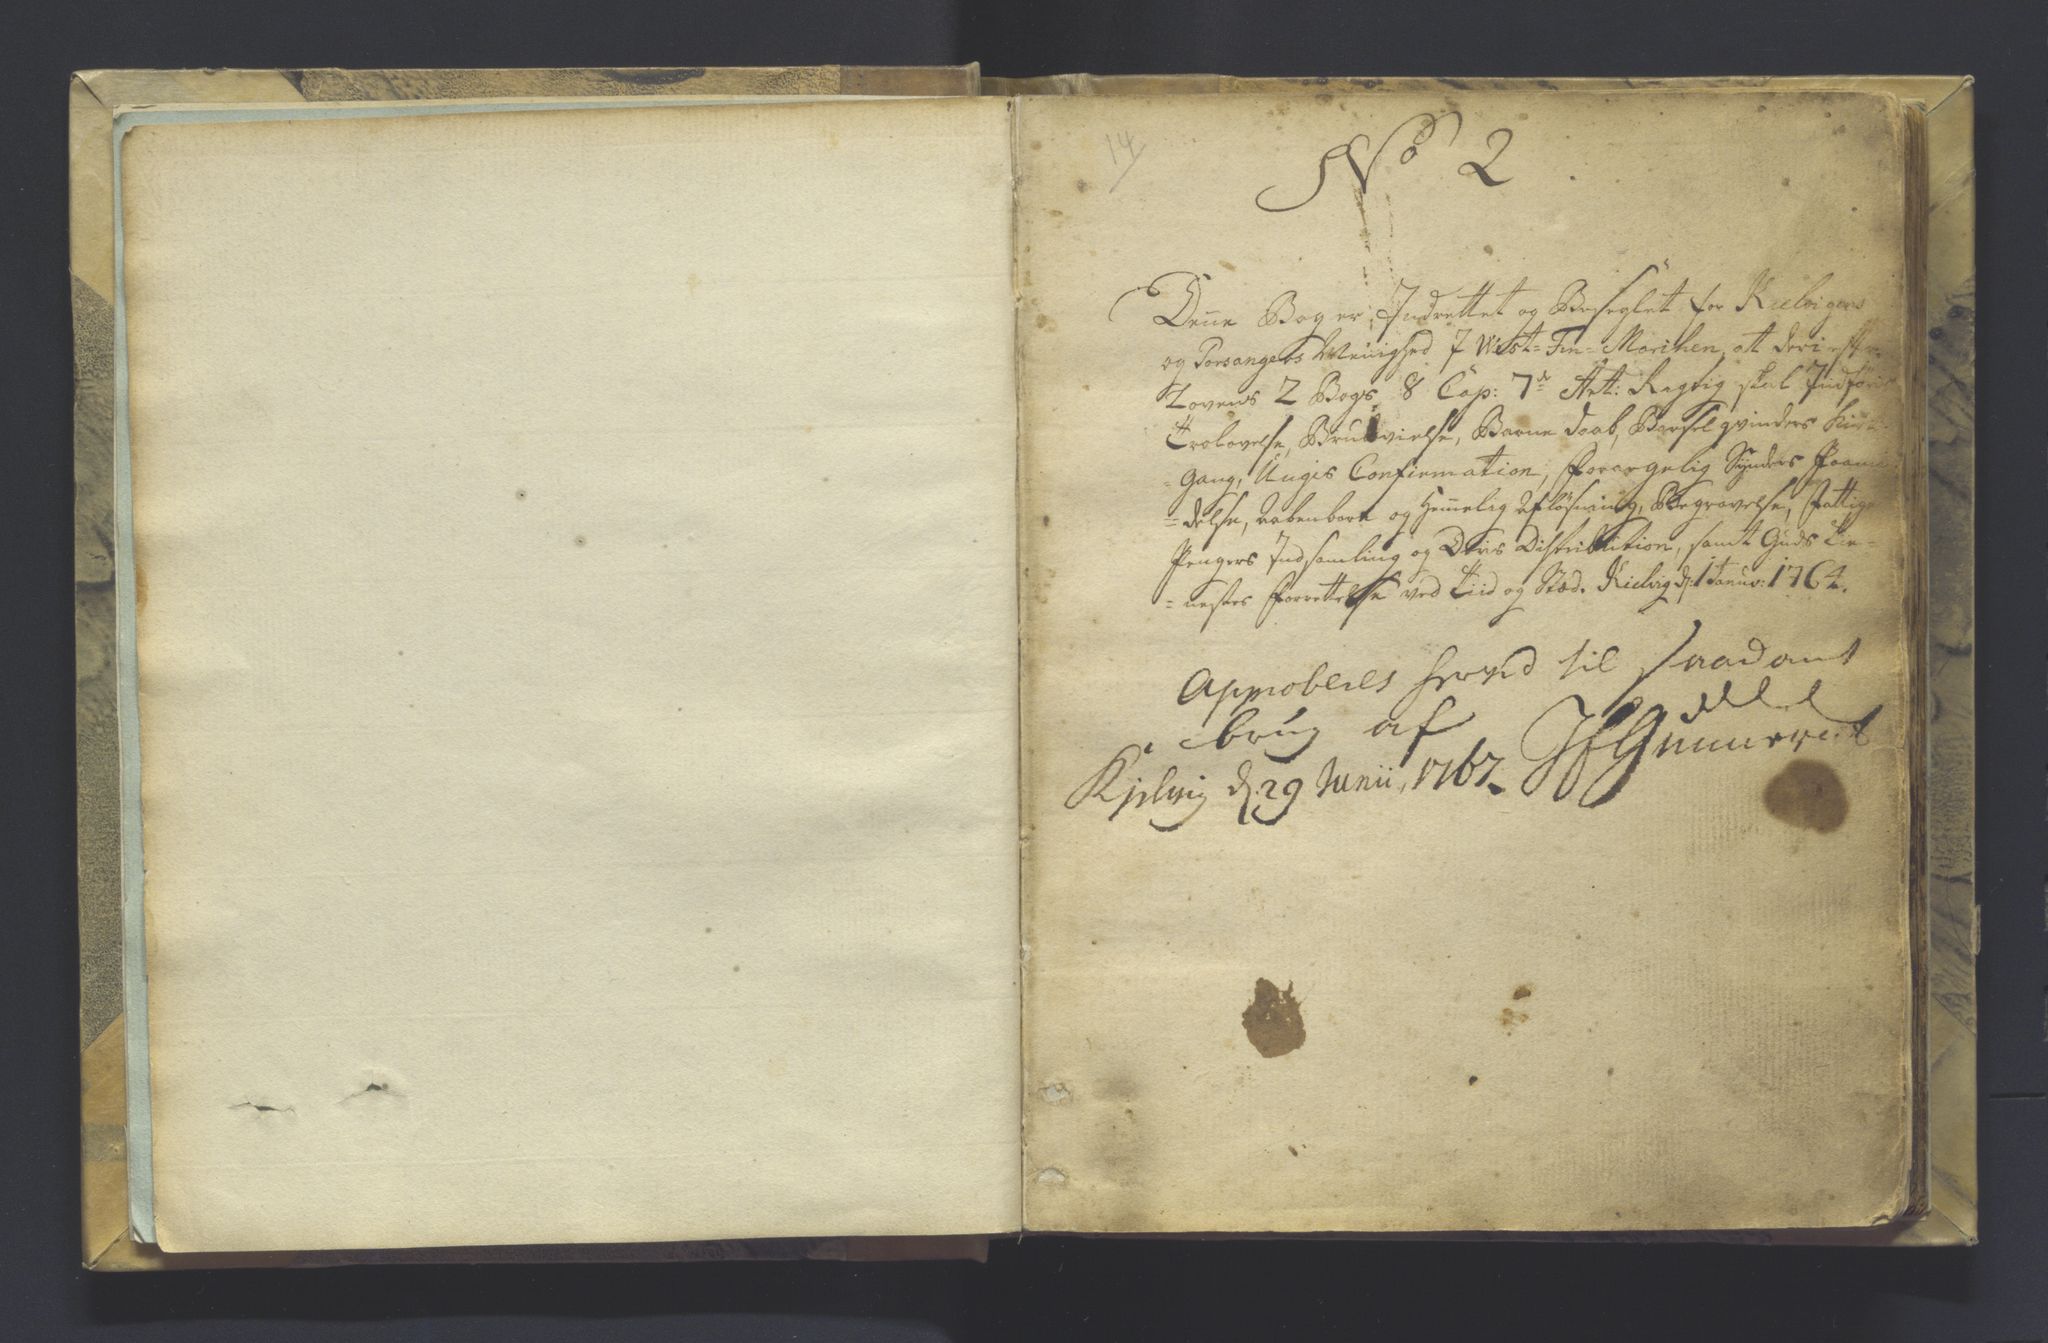 14
No 2
Denne Bog er Indrettet og Beseglet for Kielvigens
og Porsangers Menighed I West=Fin=Marchen, at deri efter
Lovens 2 Bogs 8 Cap: 7de Art: Rigtig skal Indføris
Trolovelse, Brudevielse, Barne Daab, Barselqvinders Kirke
=gang, Unges Confirmation, Forargelig Synders
=delse, aabenbare og Hemelig Afløsning, Begravelse, Fattige
Penges Indsamling og Deris Distribution, samt Guds Tie=
=nestes Forrettelse ved Tiid og Stæd. Kielvig d: 1 Januar: 1764.
Approberes hermed til saadant
brug af
Kjelvig d. 29 Junii, 1767.